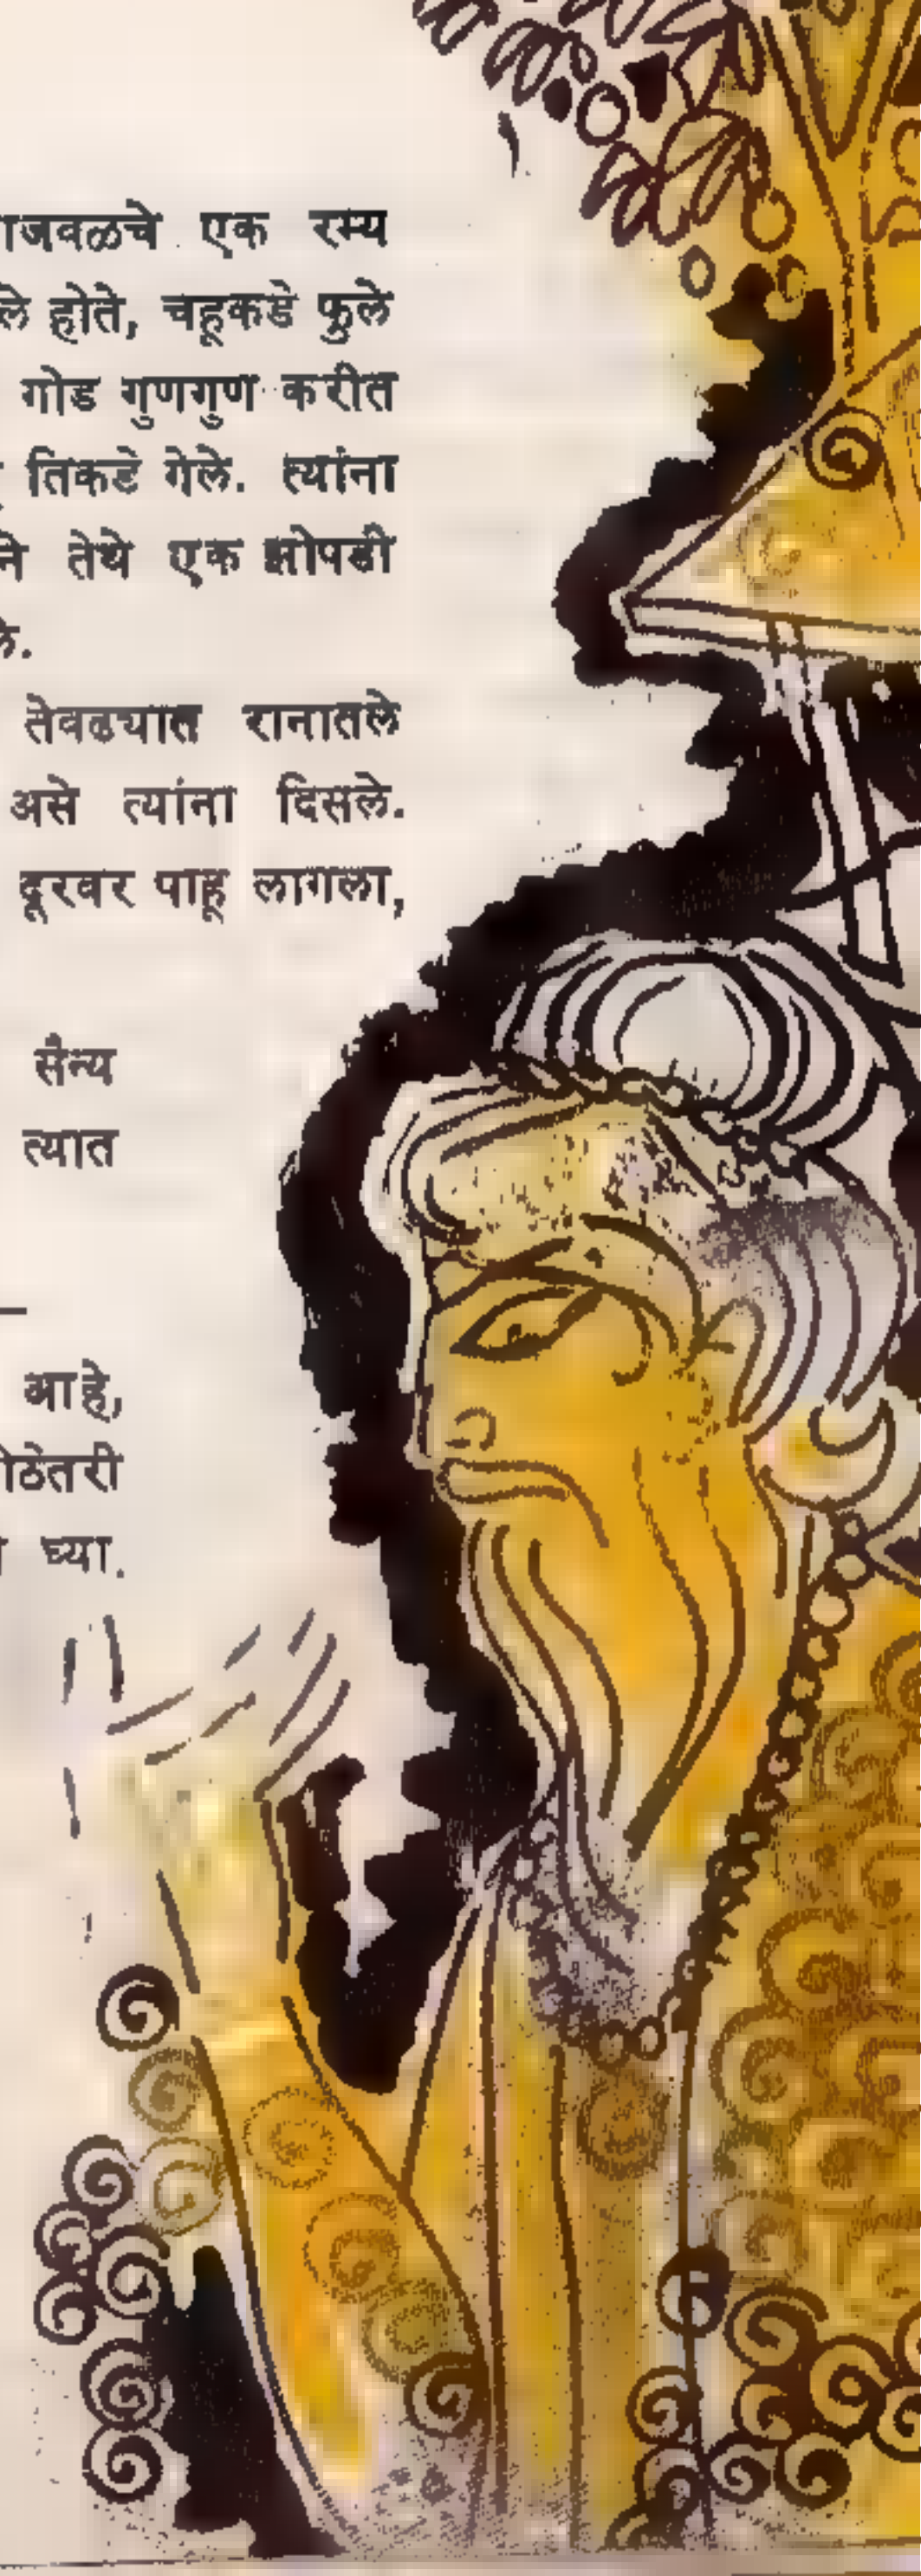 ाजवळचे एक रम्य
ले होते, चहूकडे फुले
गोड गुणगुण करीत
तिकडे गेले. त्यांना
ने तेथे एक झोपडी
ले.
तेवढ्यात रानातले
असे त्यांना दिसले.
दूरवर पाहू लागला,
सैन्य
त्यात
—
आहे,
ोठेतरी
घ्या.